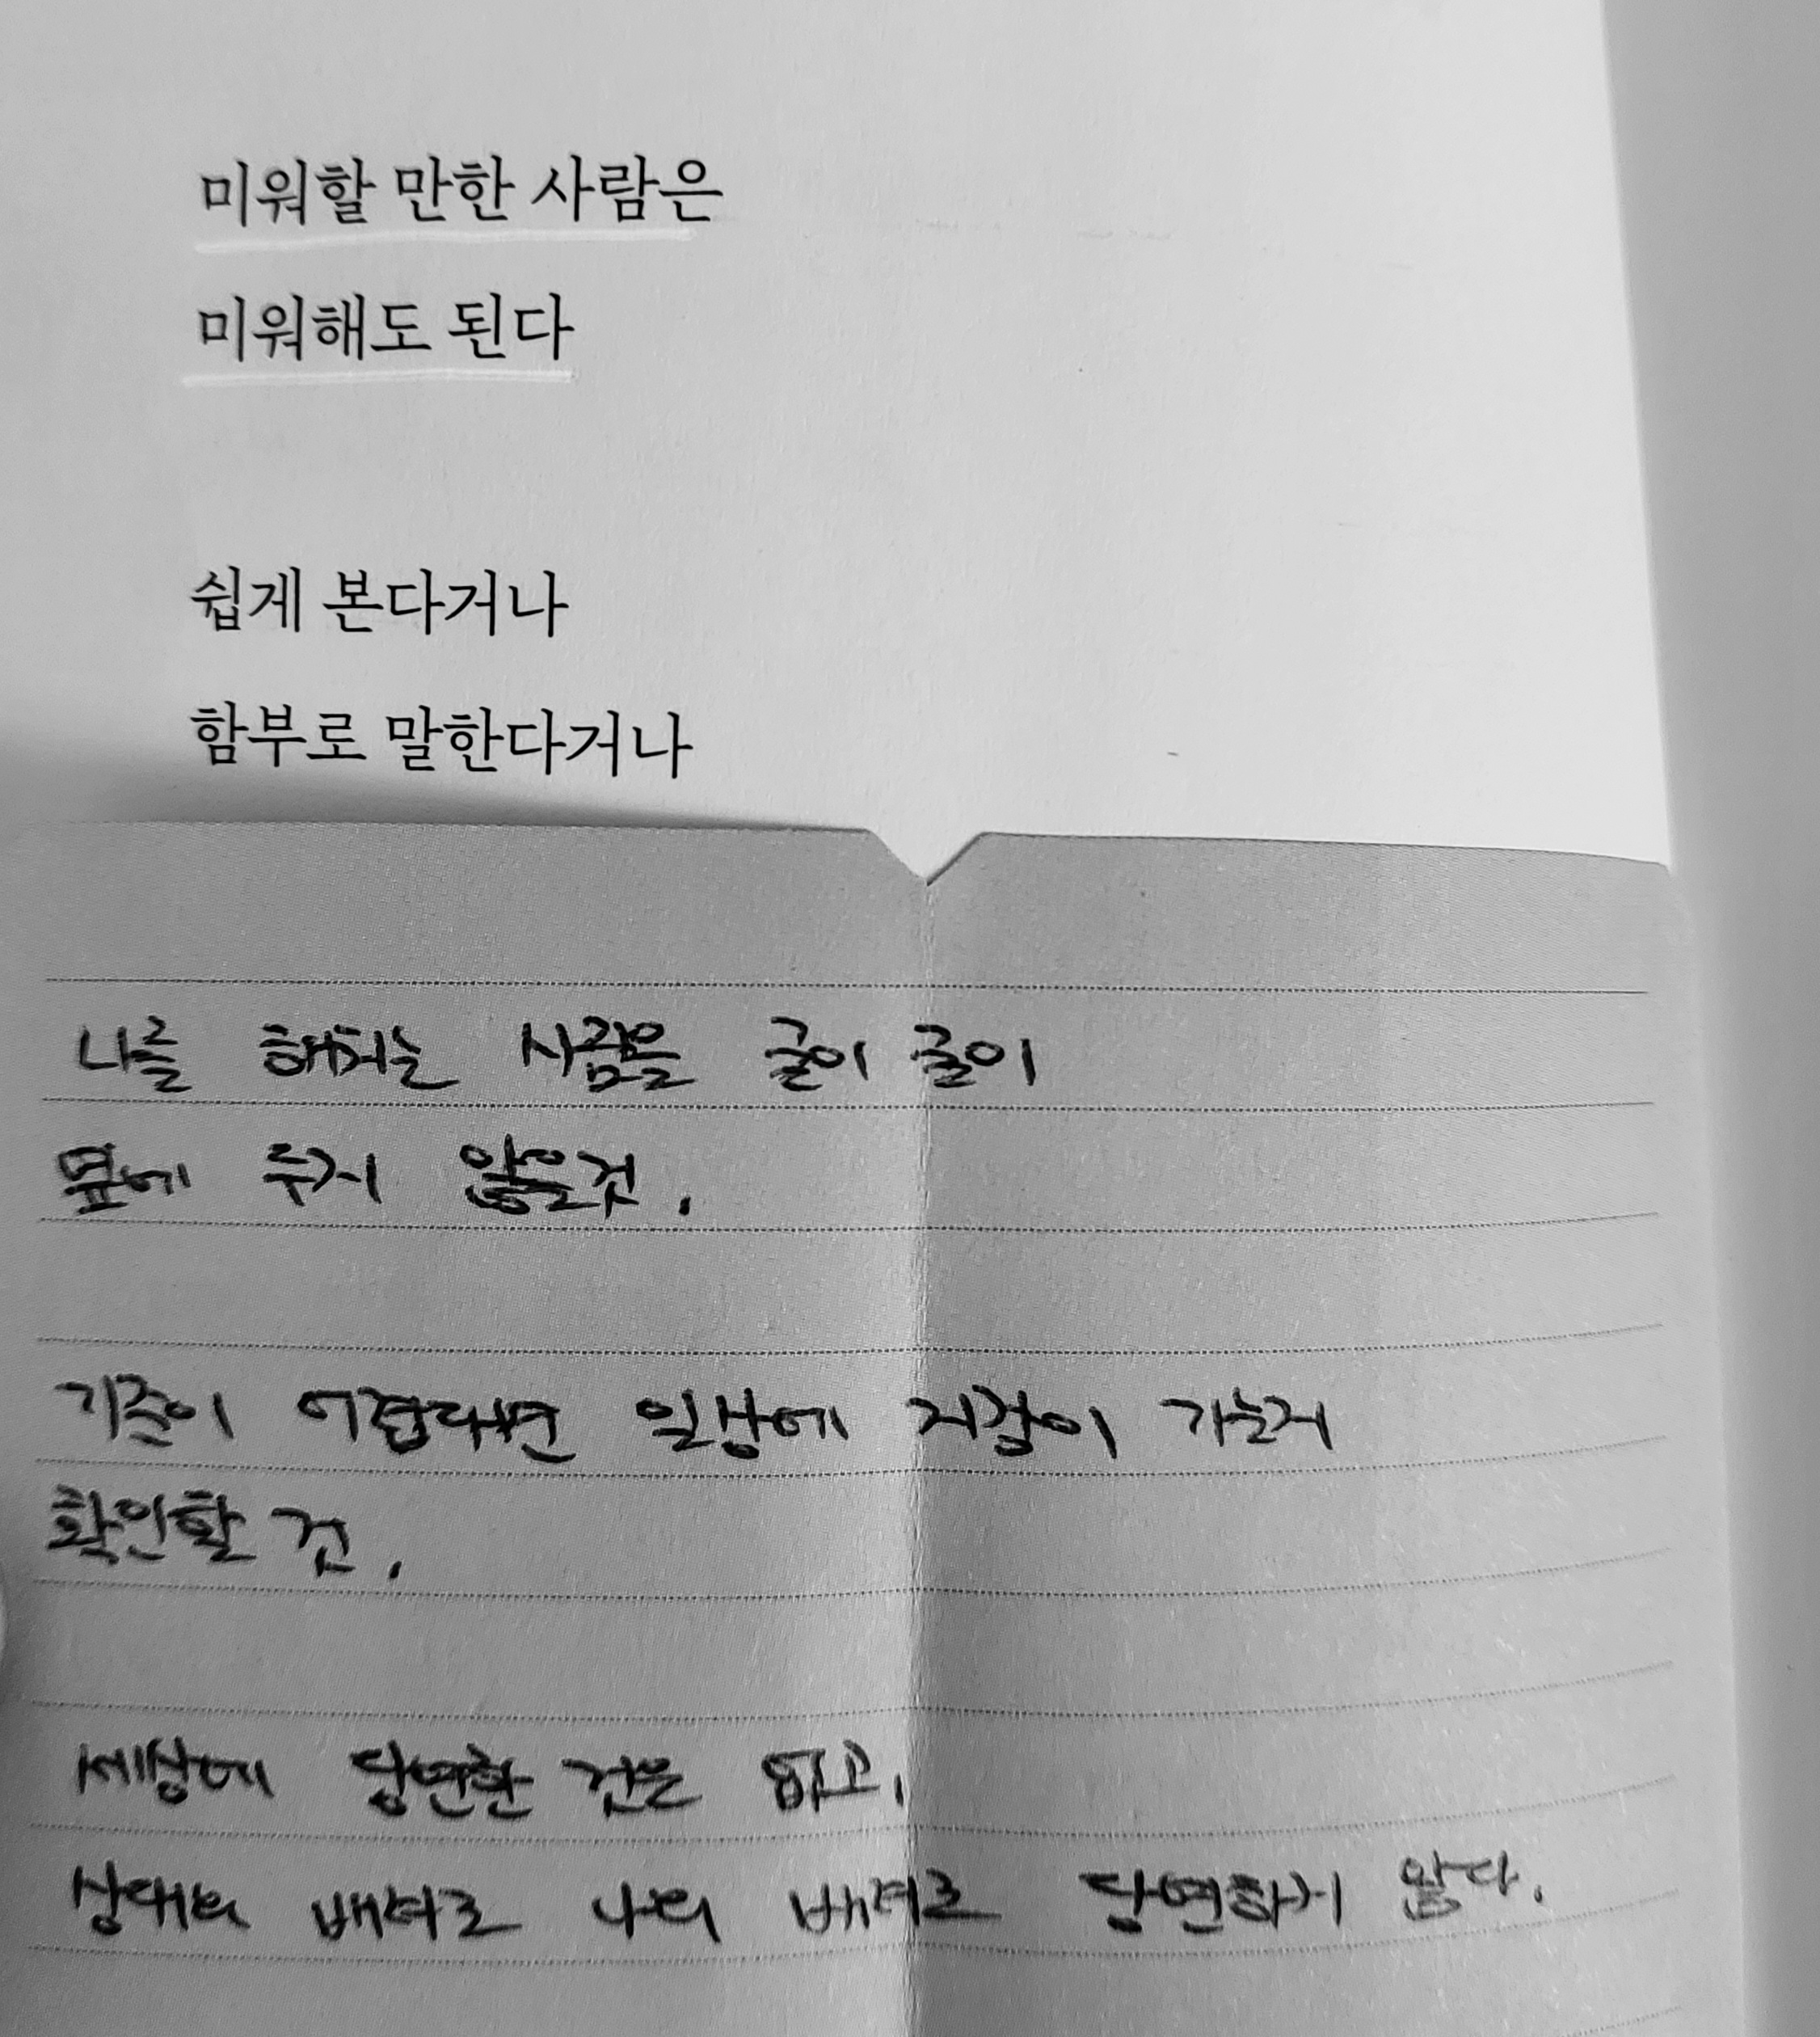 미워할 만한 사람은
미워해도 된다
쉽게 본다거나
함부로 말한다거나
나를 해치는 사람을 굳이 굳이
옆에 두지 않을것.
기준이 어렵다면 일상에 지장이 가는지
확인할 것.
세상에 당연한 것은 없고,
상대의 배려도 나의 배려도 당연하지 않다.